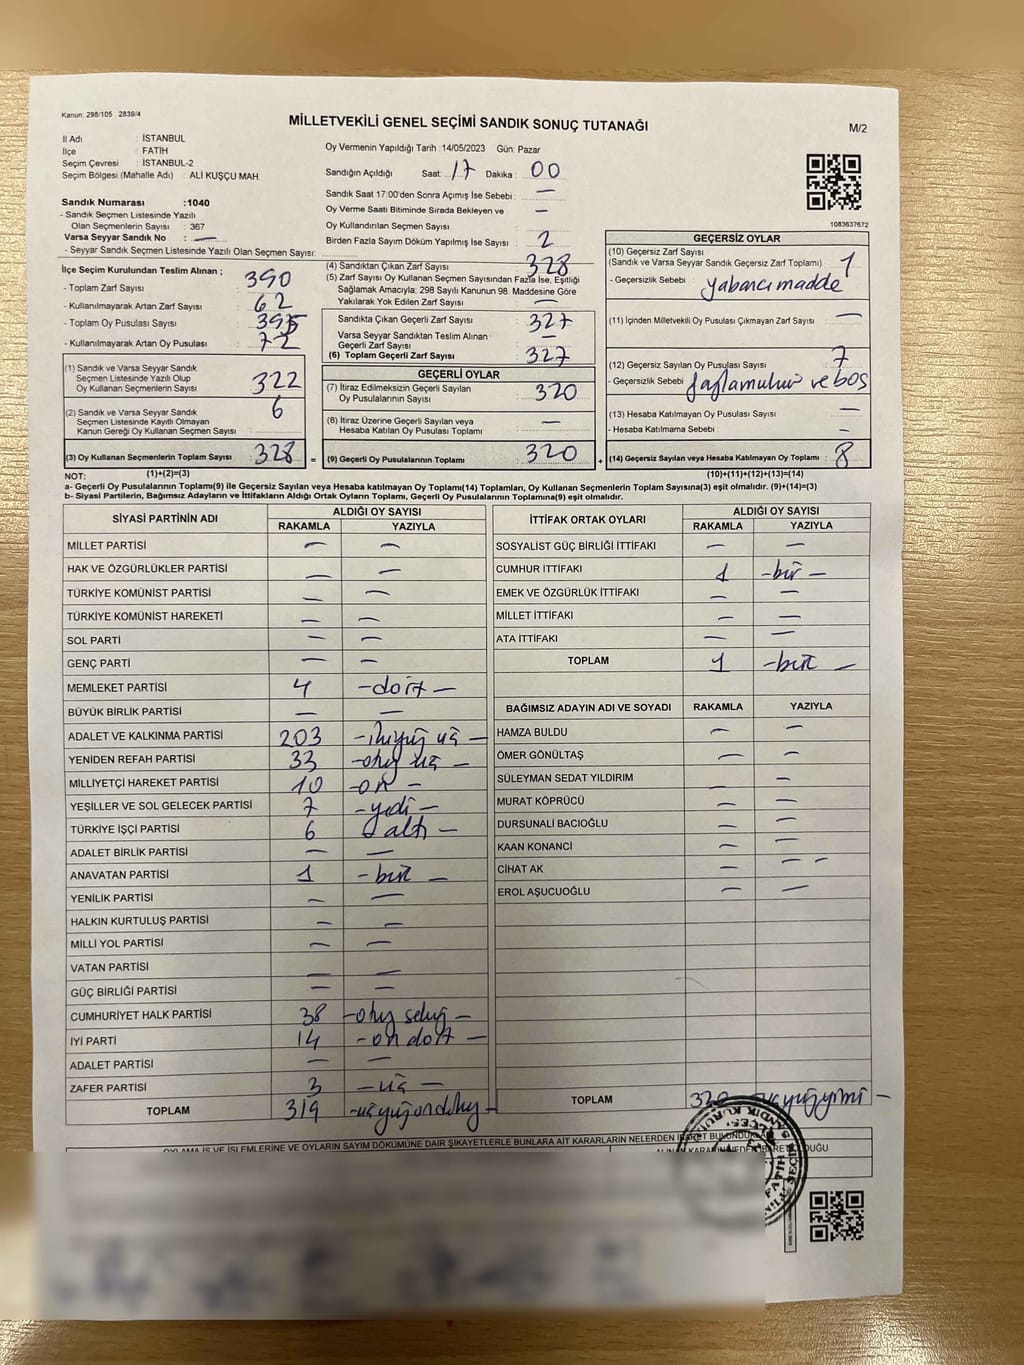 Kanun: 298/105 2839/4
MİLLETVEKİLİ GENEL SEÇİMİ SANDIK SONUÇ TUTANAĞI
M/2
İl Adı : İSTANBUL
İlçe : FATİH
Seçim Çevresi : İSTANBUL-2
Seçim Bölgesi (Mahalle Adı) : ALİ KUŞÇU MAH.
Oy Vermenin Yapıldığı Tarih :14/05/2023 Gün: Pazar
Sandığın Açıldığı Saat: 17 Dakika : 00
Sandık Saat 17:00'den Sonra Açımış İse Sebebi : —
Oy Verme Saati Bitiminde Sırada Bekleyen ve
Oy Kullandırılan Seçmen Sayısı : —
Birden Fazla Sayım Döküm Yapılmış İse Sayısı : 2
1083637672
Sandık Numarası :1040
- Sandık Seçmen Listesinde Yazılı
Olan Seçmenlerin Sayısı : 367
Varsa Seyyar Sandık No : —
- Seyyar Sandık Seçmen Listesinde Yazılı Olan Seçmen Sayısı:
İlçe Seçim Kurulundan Teslim Alınan ;
- Toplam Zarf Sayısı : 390
- Kullanılmayarak Artan Zarf Sayısı : 62
- Toplam Oy Pusulası Sayısı : 395
- Kullanılmayarak Artan Oy Pusulası : 72
(1) Sandık ve Varsa Seyyar Sandık
Seçmen Listesinde Yazılı Olup
Oy Kullanan Seçmenlerin Sayısı : 322
(2) Sandık ve Varsa Seyyar Sandık
Seçmen Listesinde Kayıtlı Olmayan
Kanun Gereği Oy Kullanan Seçmen Sayısı : 6
(3) Oy Kullanan Seçmenlerin Toplam Sayısı : 328 =
(4) Sandıktan Çıkan Zarf Sayısı : 328
(5) Zarf Sayısı Oy Kullanan Seçmen Sayısından Fazla İse, Eşitliği
Sağlamak Amacıyla; 298 Sayılı Kanunun 98. Maddesine Göre
Yakılarak Yok Edilen Zarf Sayısı : —
Sandıkta Çıkan Geçerli Zarf Sayısı : 327
Varsa Seyyar Sandıktan Teslim Alınan
Geçerli Zarf Sayısı : —
(6) Toplam Geçerli Zarf Sayısı : 327
GEÇERLİ OYLAR
(7) İtiraz Edilmeksizin Geçerli Sayılan
Oy Pusulalarının Sayısı : 320
(8) İtiraz Üzerine Geçerli Sayılan veya
Hesaba Katılan Oy Pusulası Toplamı : —
(9) Geçerli Oy Pusulalarının Toplamı : 320 +
GEÇERSİZ OYLAR
(10) Geçersiz Zarf Sayısı
(Sandık ve Varsa Seyyar Sandık Geçersiz Zarf Toplamı) : 1
- Geçersizlik Sebebi : yabancı madde
(11) İçinden Milletvekili Oy Pusulası Çıkmayan Zarf Sayısı : —
(12) Geçersiz Sayılan Oy Pusulası Sayısı : 7
- Geçersizlik Sebebi : ve boş
(13) Hesaba Katılmayan Oy Pusulası Sayısı : —
- Hesaba Katılmama Sebebi : —
(14) Geçersiz Sayılan veya Hesaba Katılmayan Oy Toplamı : 8
NOT: (1)+(2)=(3) (10)+(11)+(12)+(13)=(14)
a- Geçerli Oy Pusulalarının Toplamı(9) ile Geçersiz Sayılan veya Hesaba Katılmayan Oy Toplamı(14) Toplamları, Oy Kullanan Seçmenlerin Toplam Sayısına(3) eşit olmalıdır. (9)+(14)=(3)
b- Siyasi Partilerin, Bağımsız Adayların ve İttifakların Aldığı Ortak Oyların Toplamı, Geçerli Oy Pusulalarının Toplamına(9) eşit olmalıdır.
SİYASİ PARTİNİN ADI ALDIĞI OY SAYISI
RAKAMLA YAZIYLA
MİLLET PARTİSİ — —
HAK VE ÖZGÜRLÜKLER PARTİSİ — —
TÜRKİYE KOMÜNİST PARTİSİ — —
TÜRKİYE KOMÜNİST HAREKETİ — —
SOL PARTİ — —
GENÇ PARTİ — —
MEMLEKET PARTİSİ 4 -dört-
BÜYÜK BİRLİK PARTİSİ — —
ADALET VE KALKINMA PARTİSİ 203 -ikiyüz üç-
YENİDEN REFAH PARTİSİ 33 -otuz üç-
MİLLİYETÇİ HAREKET PARTİSİ 10 -on-
YEŞİLLER VE SOL GELECEK PARTİSİ 7 -yedi-
TÜRKİYE İŞÇİ PARTİSİ 6 -altı-
ADALET BİRLİK PARTİSİ — —
ANAVATAN PARTİSİ 1 -bir-
YENİLİK PARTİSİ — —
HALKIN KURTULUŞ PARTİSİ — —
MİLLİ YOL PARTİSİ — —
VATAN PARTİSİ — —
GÜÇ BİRLİĞİ PARTİSİ — —
CUMHURİYET HALK PARTİSİ 38 -otuz sekiz-
İYİ PARTİ 14 -on dört-
ADALET PARTİSİ — —
ZAFER PARTİSİ 3 -üç-
TOPLAM 319 -üçyüzondokuz-
İTTİFAK ORTAK OYLARI ALDIĞI OY SAYISI
RAKAMLA YAZIYLA
SOSYALİST GÜÇ BİRLİĞİ İTTİFAKI — —
CUMHUR İTTİFAKI 1 -bir-
EMEK VE ÖZGÜRLÜK İTTİFAKI — —
MİLLET İTTİFAKI — —
ATA İTTİFAKI — —
TOPLAM 1 -bir-
BAĞIMSIZ ADAYIN ADI VE SOYADI RAKAMLA YAZIYLA
HAMZA BULDU — —
ÖMER GÖNÜLTAŞ — —
SÜLEYMAN SEDAT YILDIRIM — —
MURAT KÖPRÜCÜ — —
DURSUNALİ BACIOĞLU — —
KAAN KONANCİ — —
CİHAT AK — — -
EROL AŞUCUOĞLU — —
TOPLAM 320 üçyüzyirmi-
OYLAMA İŞ VE İŞLEMLERİNE VE OYLARIN SAYIM DÖKÜMÜNE DAİR ŞİKAYETLERLE BUNLARA AİT KARARLARIN NELERDEN İBARET BULUNDUĞU